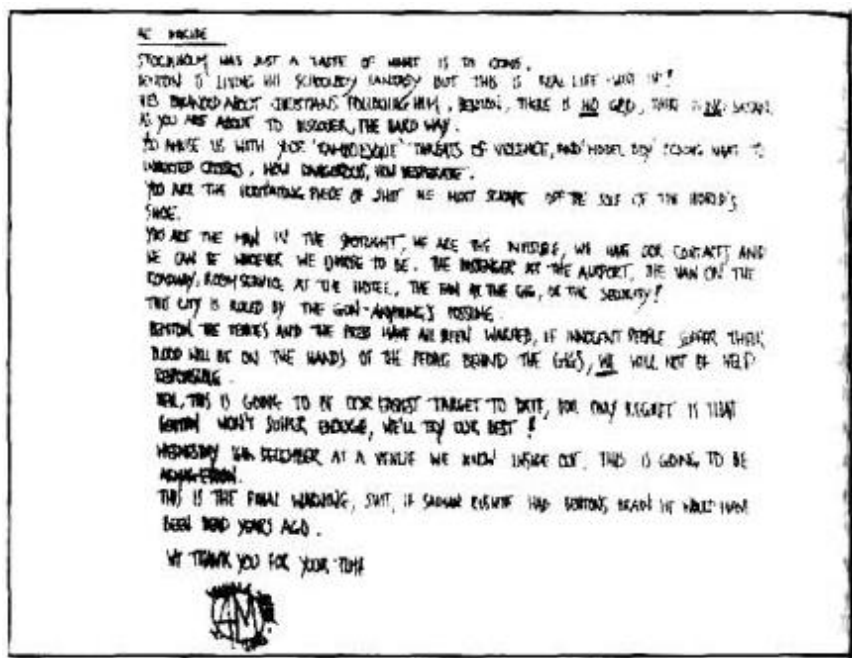 RE DEICIDE
STOCKHOLM WAS JUST A TASTE OF WHAT IS TO COME.
BENTON IS LIVING HIS SCHOOLBOY FANTASY BUT THIS IS REAL LIFE
ABOUT CHRISTIANS FOLLOWING HIM, BENTON, THERE IS NO GOD, THERE IS NO SATAN,
AS YOU ARE ABOUT TO DISCOVER, THE HARD WAY.
YOU AMUSE US WITH YOUR THREATS OF VIOLENCE, AND
INVERTED CROSSES, HOW DANGEROUS, HOW DESPERATE.
YOU ARE THE PIECE OF SHIT WE MUST SCRAPE OFF THE SOLE OF THE WORLD'S
SHOE.
YOU ARE THE MAN IN THE SPOTLIGHT, WE ARE THE INVISIBLE, WE HAVE OUR CONTACTS AND
WE CAN BE WHOEVER WE CHOOSE TO BE. THE PASSENGER AT THE AIRPORT, THE VAN ON THE
ROADWAY, ROOM SERVICE AT THE HOTEL, THE FAN AT THE GIG, OR THE SECURITY!
THIS CITY IS RULED BY THE GUN - ANYTHING'S POSSIBLE.
BENTON THE VENUES AND THE PRESS HAVE ALL BEEN WARNED, IF INNOCENT PEOPLE SUFFER THEIR
BLOOD WILL BE ON THE HANDS OF THE PEOPLE BEHIND THE GIGS, WE WILL NOT BE HELD
RESPONSIBLE.
THIS IS GOING TO BE OUR EASIEST TARGET TO DATE, OUR ONLY REGRET IS THAT
BENTON WON'T SUFFER ENOUGH, WE'LL TRY OUR BEST!
WEDNESDAY 16th DECEMBER AT A VENUE WE KNOW INSIDE OUT. THIS IS GOING TO BE
ARMAGEDDON.
THIS IS THE FINAL WARNING, SHIT, IF SALMAN RUSHDIE HAD BENTONS BRAIN HE WOULD HAVE
BEEN DEAD YEARS AGO.
WE THANK YOU FOR YOUR TIME
AM